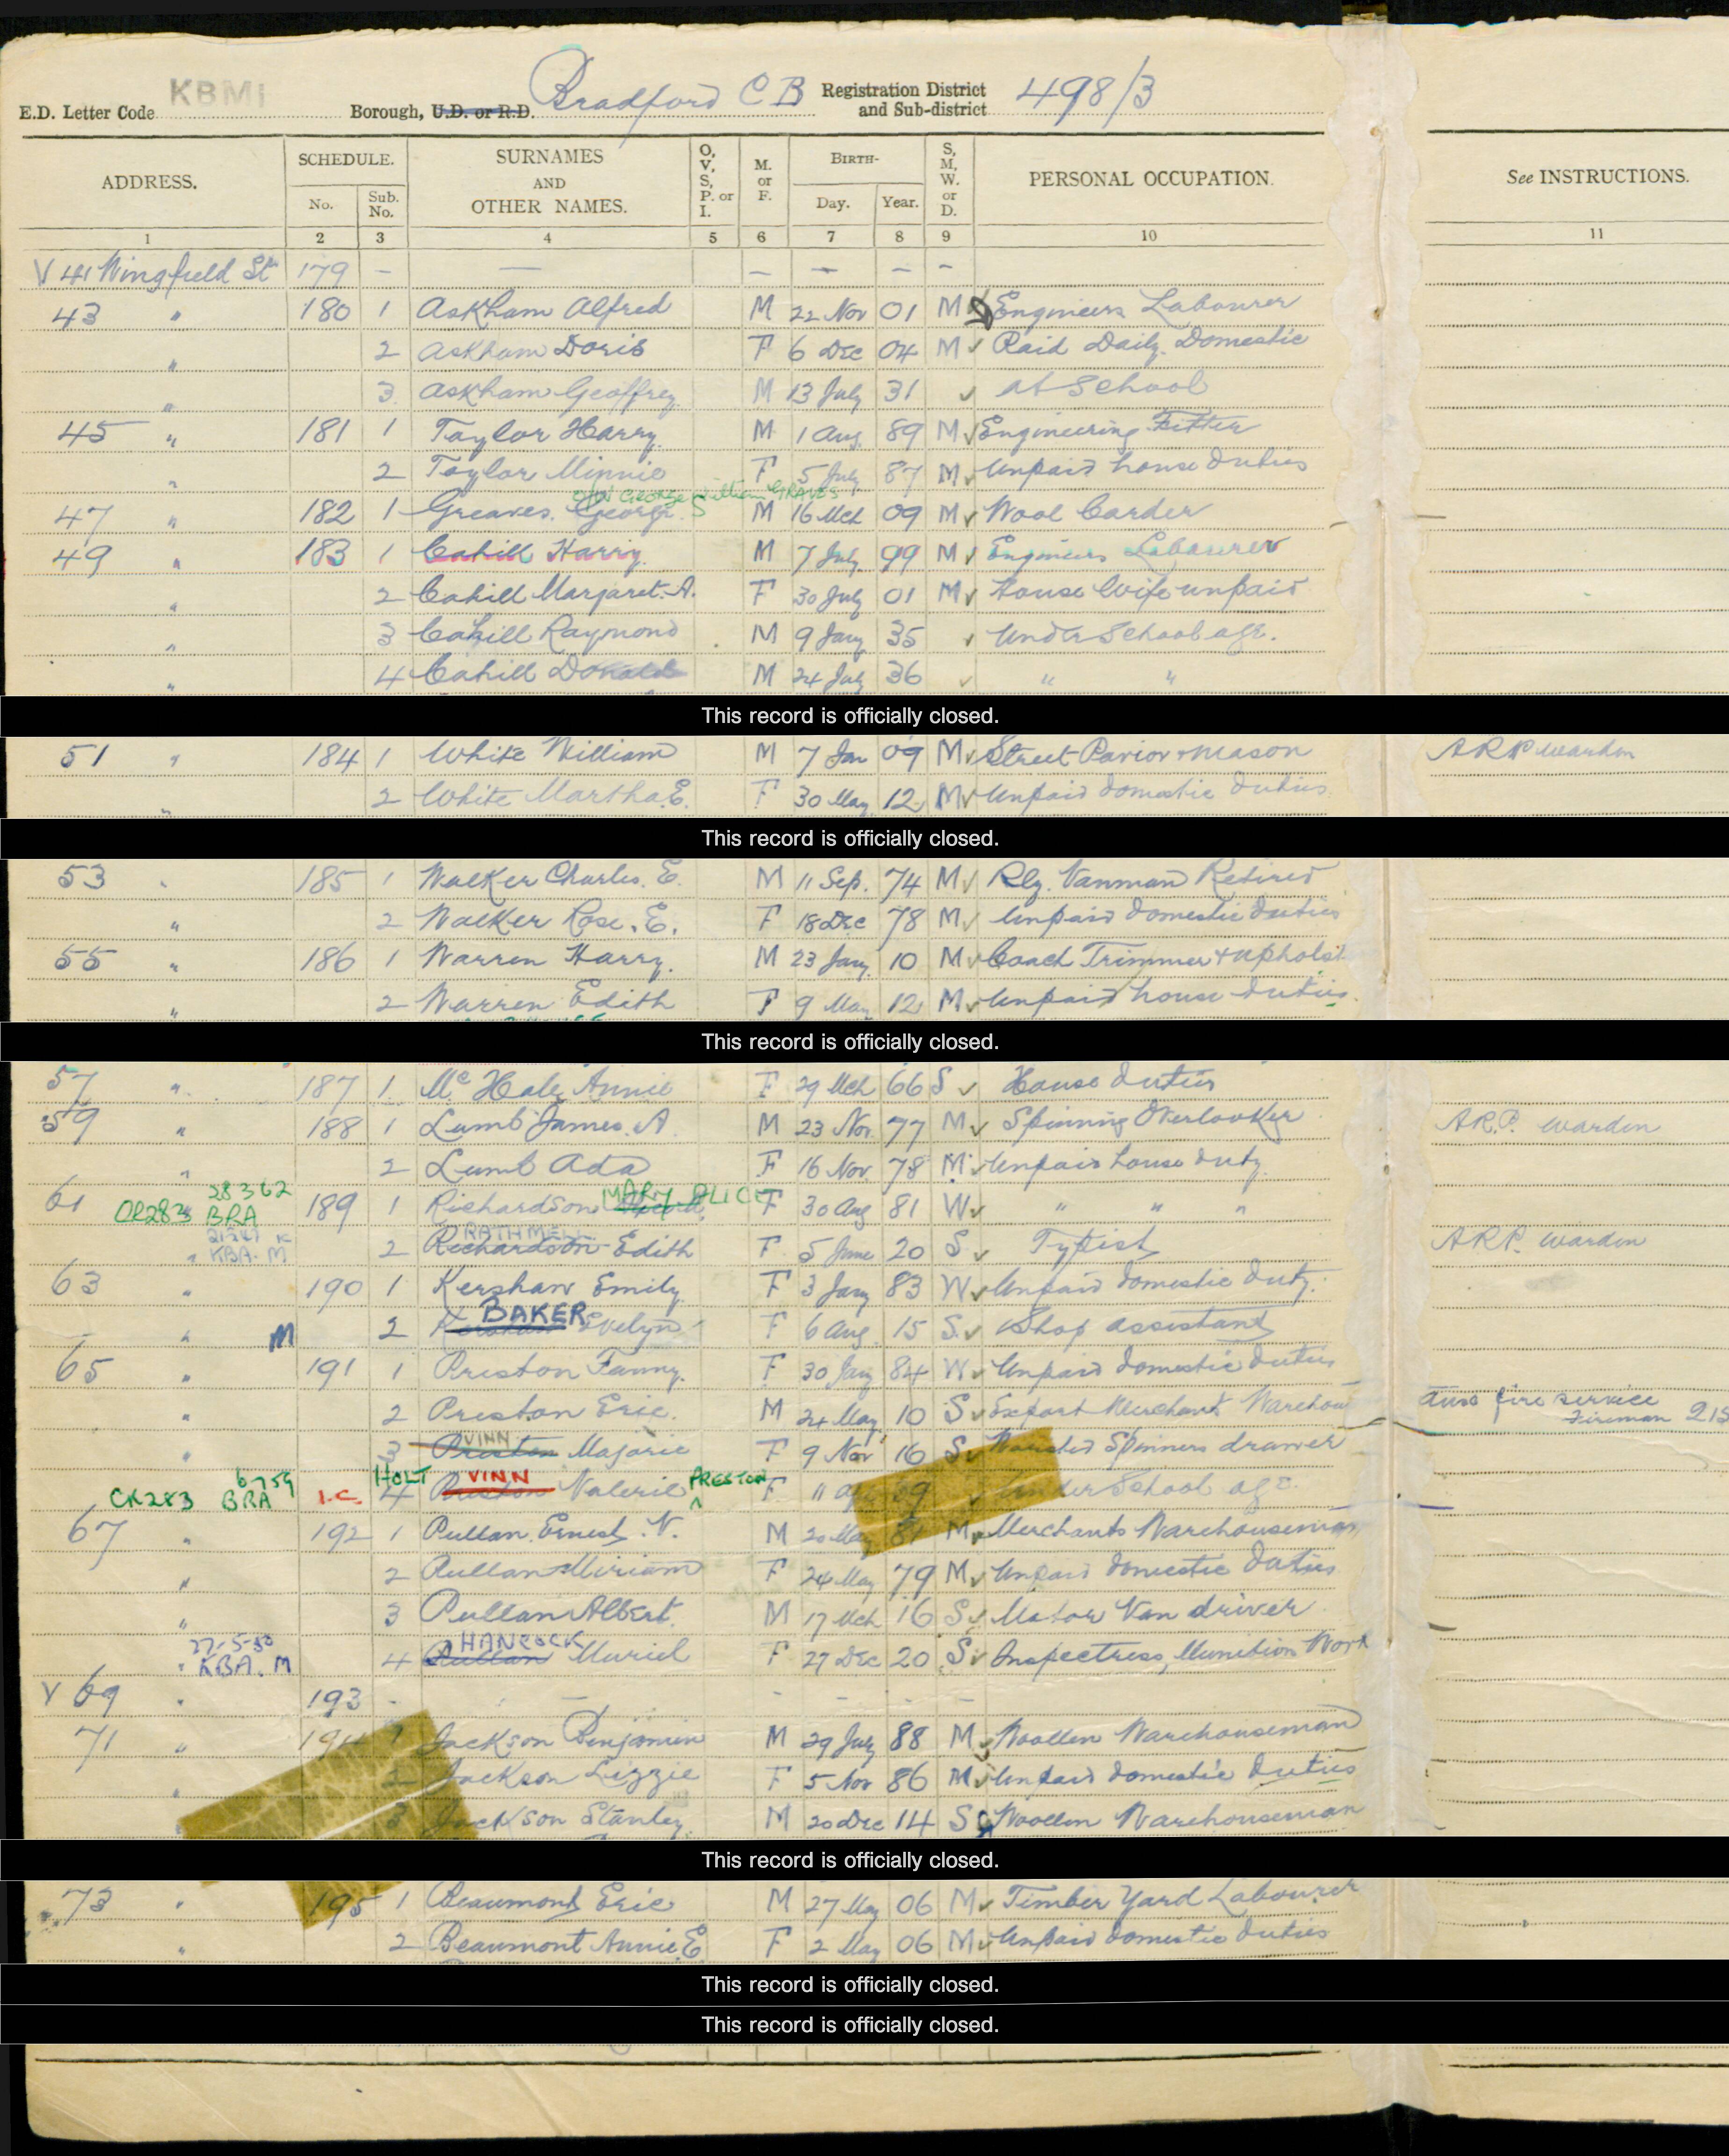 KBMI
E.D. Letter Code Borough, U.D. or R.D. Bradford C B Registration District and Sub-district 498/3
ADDRESS. SCHEDULE. No. Sub. No. SURNAMES AND OTHER NAMES. O, V, S, P. or I. M. or F. BIRTH- Day. Year. S, M, W. or D. PERSONAL OCCUPATION. See INSTRUCTIONS.
1 2 3 4 5 6 7 8 9 10 11
V 41 Wingfield St 179 - — — — — —
43 " 180 1 Askham Alfred M 22 Nov 01 M Engineers Labourer
" 2 Askham Doris F 6 Dec 04 M ✓ Paid Daily Domestic
" 3 Askham Geoffrey M 13 July 31 ✓ at School
45 " 181 1 Taylor Harry M 1 Aug 89 M ✓ Engineering Fitter
" 2 Taylor Minnie F 5 July 87 M ✓ Unpaid house Duties
George William GRAVES
47 " 182 1 Greaves. George M 16 Mch 09 M ✓ Wool Carder
49 " 183 1 Cahill Harry. M 7 July 99 M ✓ Engineers Labourer
" 2 Cahill Margaret. A. F 30 July 01 M ✓ House Wife unpaid
" 3 Cahill Raymond M 9 Jany 35 ✓ Under School age.
" 4 Cahill Donald M 24 July 36 ✓ " "
This record is officially closed.
51 " 184 1 White William M 7 Jan 09 M ✓ Street Pavior & Mason ARP Warden
" 2 White Martha E. F 30 May 12 M ✓ Unpaid domestic duties
This record is officially closed.
53 " 185 1 Walker Charles. E. M 11 Sep. 74 M ✓ Rly. Vanman Retired
" 2 Walker Rose. E. F 18 Dec 78 M ✓ Unpaid domestic duties
55 " 186 1 Warren Harry. M 23 Jany 10 M ✓ Coach Trimmer & upholst
" 2 Warren Edith F 9 May 12 M ✓ Unpaid house duties.
This record is officially closed.
57 " 187 1. Mc Hale Annie F 29 Mch 66 S ✓ House duties
59 " 188 1 Lumb James. A. M 23 Nov. 77 M ✓ Spinning Overlooker A.R.P. Warden
" 2 Lumb Ada F 16 Nov. 78 M ✓ Unpaid house duty
28362 MARY ALICE
61 CR283 BRA 189 1 Richardson F 30 Aug 81 W ✓ " " "
RATHMELL
" KBA. M 2 Richardson Edith F 5 June 20 S ✓ Typist ARP. Warden
63 " 190 1 Kershaw Emily F 3 Jany 83 W ✓ Unpaid domestic duty.
BAKER
" M 2 Kershaw Evelyn F 6 Aug. 15 S. ✓ Shop assistant
65 " 191 1 Preston Fanny. F 30 Jany 84 W ✓ Unpaid domestic duties
" 2 Preston Eric. M 24 May 10 S ✓ Export Merchant Warehou Aux fire service Fireman 215
VINN
" 3 Preston Majorie F 9 Nov 16 S ✓ Worsted Spinners drawer
6759 HOLT VINN PRESTON
CK283 BRA I.C. 4 Preston Valerie F 11 Apl 39 ✓ Under School age
67 " 192 1 Pullan Ernest. N. M 20 May 81 M ✓ Merchants Warehouseman
" 2 Pullan Miriam F 24 May 79 M ✓ Unpaid domestic duties
" 3 Pullan Albert. M 17 Mch 16 S ✓ Motor Van driver
27-5-50 HANCOCK
" KBA. M 4 Pullan Muriel F 27 Dec 20 S ✓ Inspectress, Munition Work
V 69 " 193 - - - - - -
71 " 194 1 Jackson Benjamin M 29 July 88 M ✓ Woollen Warehouseman
" 2 Jackson Lizzie F 5 Nov 86 M ✓ Unpaid domestic duties
" 3 Jackson Stanley. M 20 Dec 14 S Woollen Warehouseman
This record is officially closed.
73 " 195 1 Beaumont Eric M 27 May 06 M ✓ Timber Yard Labourer
" 2 Beaumont Annie E F 2 May 06 M ✓ Unpaid domestic duties
This record is officially closed.
This record is officially closed.